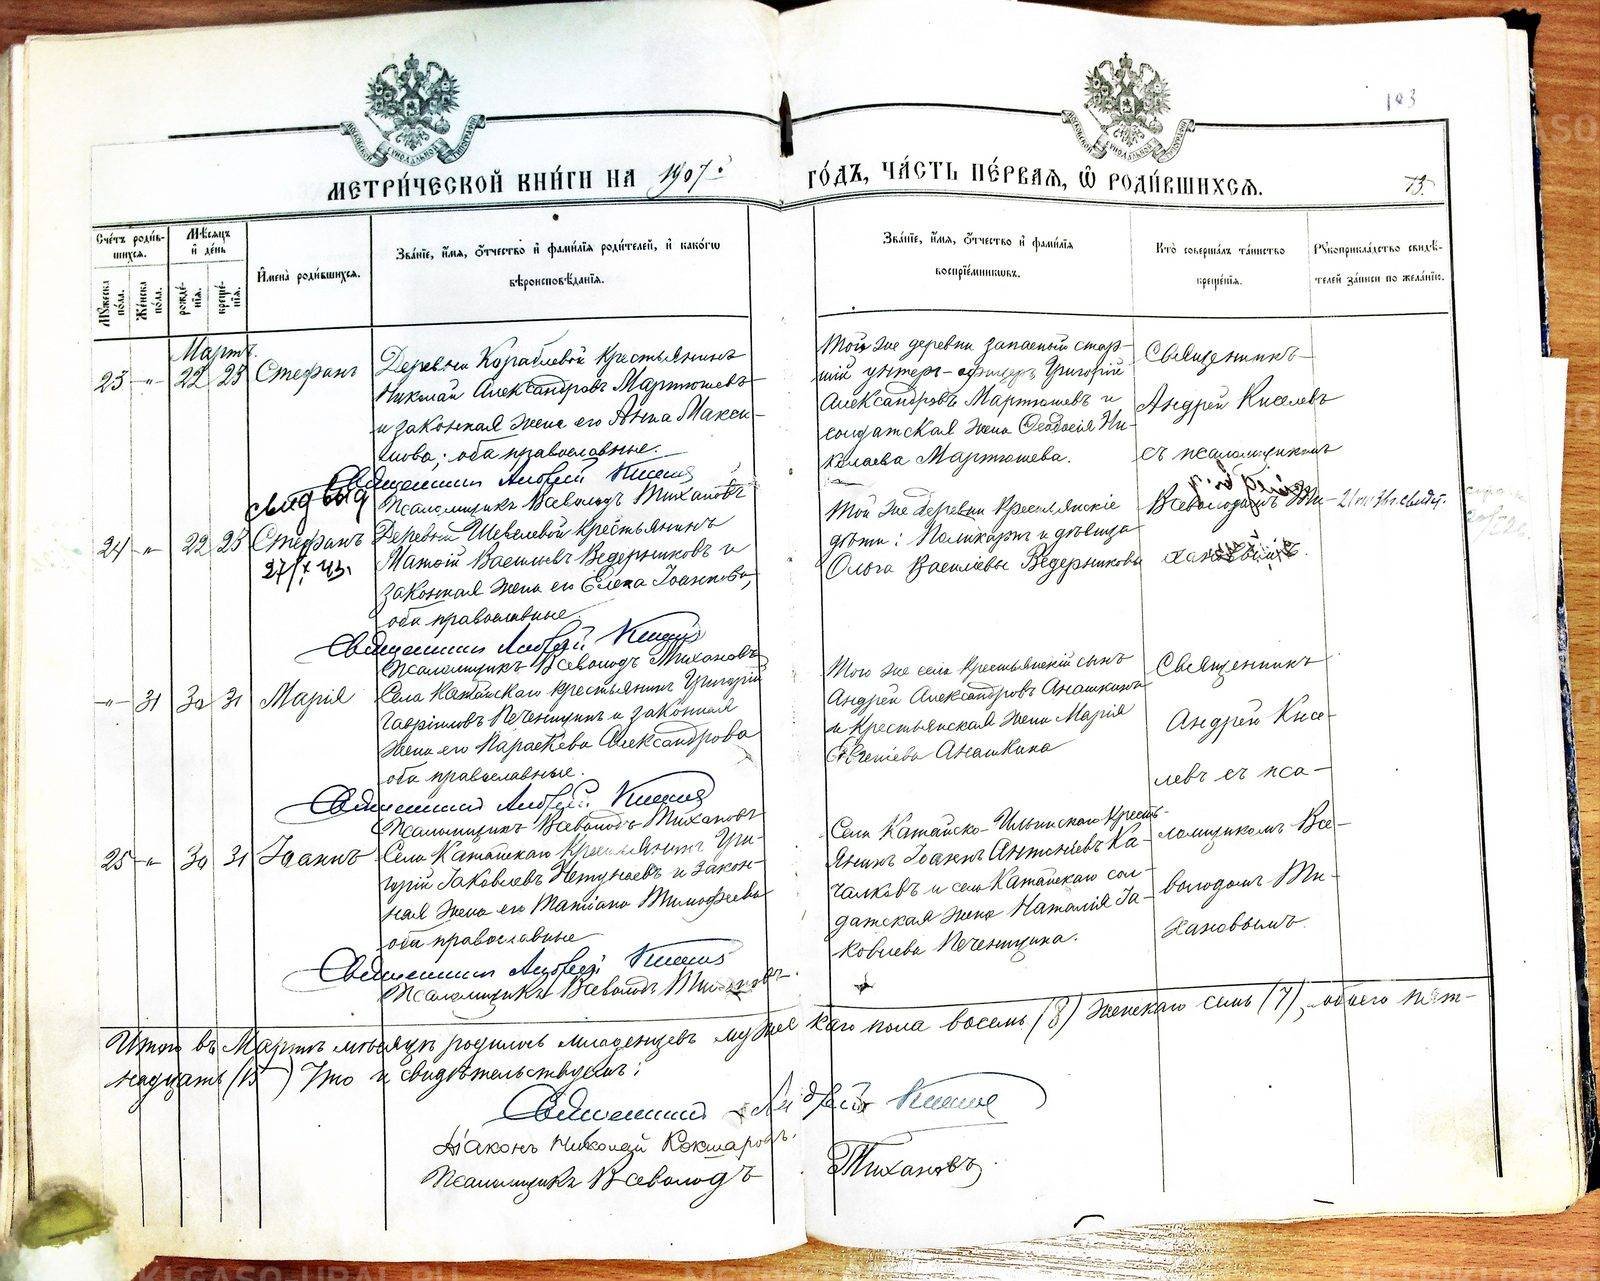 103
МЕТРИ́ЧЕСКОЙ КНИ́ГИ НА 1907 ГО́ДЪ, ЧА́СТЬ ПЕ́РВАЯ, Ѡ РОДИ́ВШИХСЯ.
73.
Сче́тъ роди́в-
шихся.
Му́жеска по́ла.
Же́нска по́ла.
Мѣ́сяцъ и де́нь
рожде́-
нїя.
креще́-
нїя.
Имена̀ роди́вшихся.
Зва́нїе, и́мя, о́тчество и фами́лїя роди́телей, и како́гѡ
вѣроисповѣ́данїя.
Зва́нїе, и́мя, о́тчество и фами́лїя
воспрїе́мниковъ.
Кто̀ соверша́лъ та́инство
креще́нїя.
Рукоприкла́дство свидѣ́-
телей за́писи по жела́нїю.
Мартъ.
23 -"- 22 23 Стефанъ
Деревни Кораблевой крестьянинъ
Николай Александровъ Мартюшевъ
и законная жена его Анна Макси-
мова; оба православные.
Священникъ Андрей Киселевъ
Псаломщикъ Всеволодъ Тихановъ
Той же деревни запасный стар-
шій унтеръ-офицеръ Григорій
Александровъ Мартюшевъ и
солдатская жена Ѳеодосія Ни-
колаева Мартюшева.
Священникъ
Андрей Киселевъ
съ псаломщикомъ
Всеволодомъ Ти-
хановымъ.
24 -"- 22 23 Стефанъ
Деревни Шевелевой крестьянинъ
Матѳій Васильевъ Ведерниковъ и
законная жена его Елена Іоаннова,
оба православные.
Священникъ Андрей Киселевъ
Псаломщикъ Всеволодъ Тихановъ
Той же деревни крестьянскіе
дѣти: Поликарпъ и дѣвица
Ольга Василіевы Ведерниковы
-"- 31 30 31 Марія
Села Катайскаго крестьянинъ Григорій
Гавріиловъ Печенщинъ и законная
жена его Параскева Александрова
оба православные.
Священникъ Андрей Киселевъ
Псаломщикъ Всеволодъ Тихановъ
Того же села крестьянскій сынъ
Андрей Александровъ Анашкинъ
и крестьянская жена Марія
Евгеніева Анашкина
Священникъ
Андрей Кисе-
левъ съ пса-
ломщикомъ Все-
володомъ Ти-
хановымъ.
25 -"- 30 31 Іоаннъ
Села Катайскаго крестьянинъ Гри-
горій Іаковлевъ Петунаевъ и закон-
ная жена его Татіана Тимофеева
оба православные
Священникъ Андрей Киселевъ
Псаломщикъ Всеволодъ Тихановъ
Села Катайско-Ильинскаго кресть-
янинъ Іоаннъ Антоніевъ Ка-
чалковъ и села Катайскаго сол-
датская жена Наталія Іа-
ковлева Печенщина.
Итого въ Мартѣ мѣсяцѣ родилось младенцевъ мужескаго пола восемь (8) женскаго семь (7), обоего пят-
надцать (15) Что и свидѣтельствуемъ:
Священникъ Андрей Киселевъ
Діаконъ Николай Кокшаровъ.
Псаломщикъ Всеволодъ Тихановъ.